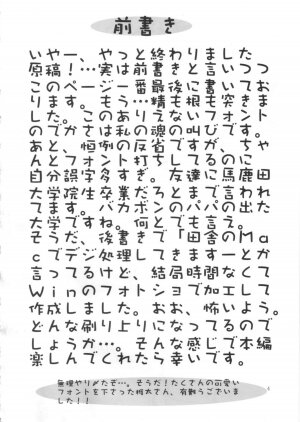 前書き
いやー、やっと終わりました
原稿！…実は前書きと言いつつ
このページ一番最後に書いてお
ります。もう…精も根も突きま
した。このありえないフォント
のでかさは私の魂の叫びです。
あと、恒例の反省ですが、ちゃ
んとフォント打ちしてるのに
自分誤字多すぎ。友達に馬鹿田
大学院生卒業だろとまで言われ
てます。バカボンのパパの出た
大学ですね。何とでも言え。
そうだ、後書きで「田舎のMa
cでデジ処理してきますーとか
言ってるけど、結局時間なくて
Winのフォトショで加工して
作成しました。おお、怖いよう。
どんな刷り上りになってるので
しょうか…。そんな感じで本編
楽しんでくれたら幸いです。
無理やり〆たぞ…。そうだ！たくさんの可愛い
フォントを下さった翔太さん、有難うございま
した！！